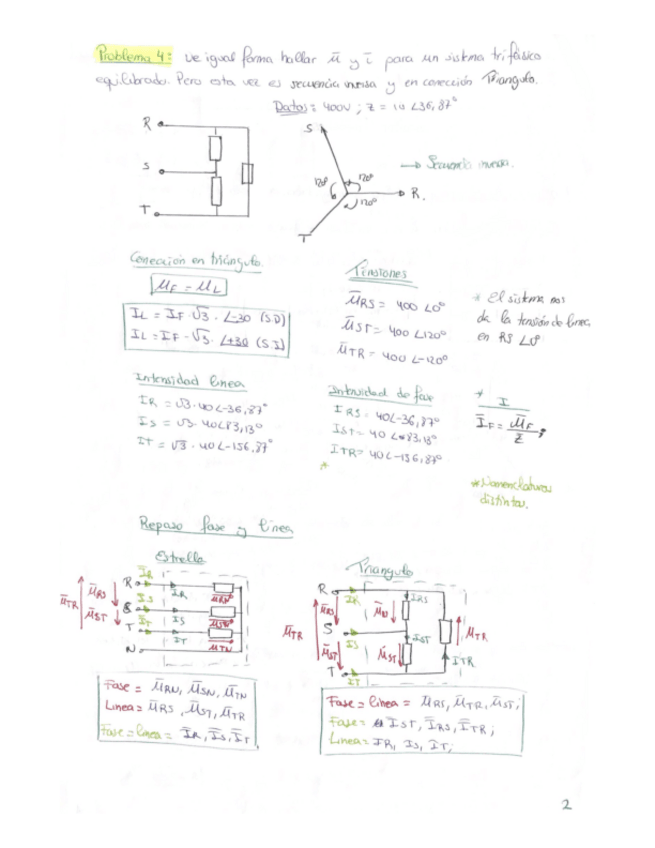 Problema 4: De igual forma hallar ū y ī para un sistema trifásico
equilibrado. Pero esta vez es secuencia inversa y en conección Triangulo.
Datos: 400V ; Z = 10 ∠36,87°
R
S
T
S
120°
120°
120°
R.
T
→ Secuencia inversa.
Conección en triángulo.
UF = UL
IL = IF · √3 · ∠-30 (S.D)
IL = IF · √3 · ∠+30 (S.I)
Tensiones
ŪRS = 400 ∠0°
ŪST = 400 ∠120°
ŪTR = 400 ∠-120°
* El sistema nos
da la tensión de linea,
en RS ∠0°
Intensidad linea
IR = √3 · 40 ∠-36,87°
IS = √3 · 40 ∠83,13°
IT = √3 · 40 ∠-156,87°
Intensidad de fase
IRS = 40 ∠-36,87°
IST = 40 ∠83,13°
ITR = 40 ∠-156,87°
*
* I
ĪF = ŪF / Z̄ ;
* Nomenclaturas
distintas.
Repaso fase y linea
Estrella
R
S
T
N
ĪR
ĪS
ĪT
IR
IS
IT
URN
USN
UTN
ŪRS
ŪST
ŪTR
Fase = ŪRN, ŪSN, ŪTN
Linea = ŪRS, ŪST, ŪTR
Fase = linea = ĪR, ĪS, ĪT
Triangulo
R
S
T
ĪR
ĪS
ĪT
IRS
IST
ITR
ŪRS
ŪST
ŪTR
ŪST
UTR
Fase = linea = ŪRS, ŪTR, ŪST;
Fase = IST, ĪRS, ĪTR;
Linea = IR, IS, IT;
2